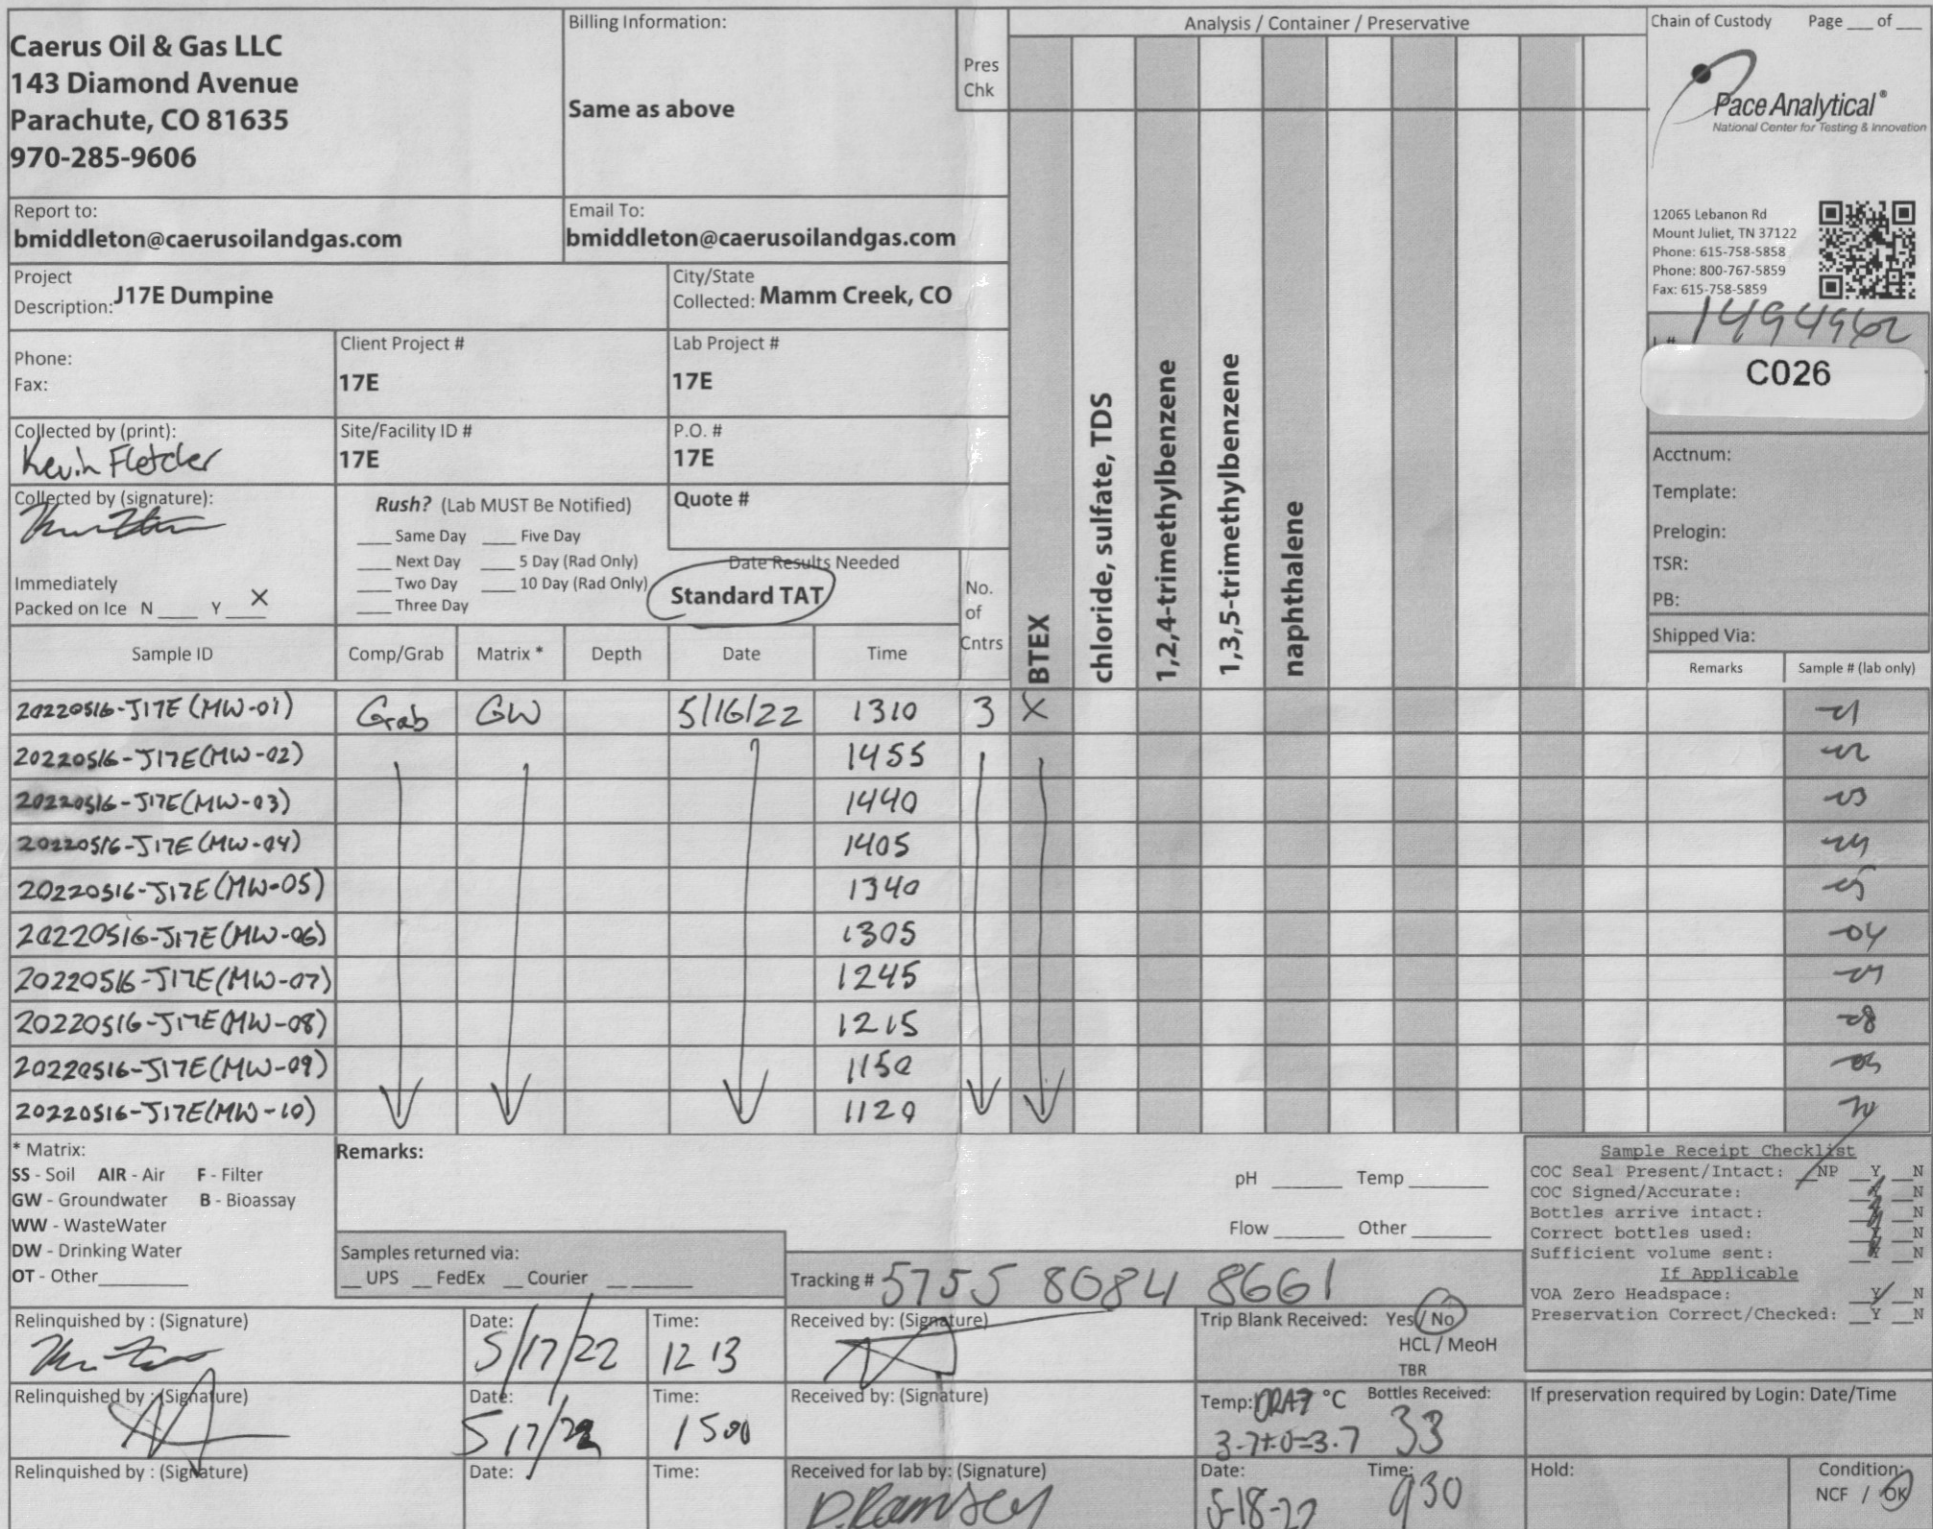 Caerus Oil & Gas LLC
143 Diamond Avenue
Parachute, CO 81635
970-285-9606
Billing Information:
Same as above
Pres
Chk
Analysis / Container / Preservative
Chain of Custody Page ___ of ___
Pace Analytical®
National Center for Testing & Innovation
12065 Lebanon Rd
Mount Juliet, TN 37122
Phone: 615-758-5858
Phone: 800-767-5859
Fax: 615-758-5859
Report to:
bmiddleton@caerusoilandgas.com
Email To:
bmiddleton@caerusoilandgas.com
Project
Description: J17E Dumpine
City/State
Collected: Mamm Creek, CO
Phone:
Fax:
Client Project #
17E
Lab Project #
17E
L# 1494962
C026
Collected by (print):
Kevin Fletcher
Site/Facility ID #
17E
P.O. #
17E
Acctnum:
Template:
Prelogin:
TSR:
PB:
Shipped Via:
Collected by (signature):
Immediately
Packed on Ice N ___ Y X
Rush? (Lab MUST Be Notified)
___ Same Day ___ Five Day
___ Next Day ___ 5 Day (Rad Only)
___ Two Day ___ 10 Day (Rad Only)
___ Three Day
Quote #
Date Results Needed
Standard TAT
No.
of
Cntrs
BTEX
chloride, sulfate, TDS
1,2,4-trimethylbenzene
1,3,5-trimethylbenzene
naphthalene
Sample ID Comp/Grab Matrix * Depth Date Time Remarks Sample # (lab only)
20220516-J17E (MW-01) Grab GW 5/16/22 1310 3 X -01
20220516-J17E(MW-02) 1455 -02
20220516-J17E(MW-03) 1440 -03
20220516-J17E(MW-04) 1405 -04
20220516-J17E(MW-05) 1340 -05
20220516-J17E(MW-06) 1305
20220516-J17E(MW-07) 1245 -07
20220516-J17E(MW-08) 1215 -08
20220516-J17E(MW-09) 1150 -09
20220516-J17E(MW-10) 1120
* Matrix:
SS - Soil AIR - Air F - Filter
GW - Groundwater B - Bioassay
WW - WasteWater
DW - Drinking Water
OT - Other___
Remarks:
pH ___ Temp ___
Flow ___ Other ___
Samples returned via:
__ UPS __ FedEx __ Courier __ ___
Tracking # 5755 8084 8661
Sample Receipt Checklist
COC Seal Present/Intact: __NP __Y __N
COC Signed/Accurate: __Y __N
Bottles arrive intact: __Y __N
Correct bottles used: __Y __N
Sufficient volume sent: __Y __N
If Applicable
VOA Zero Headspace: __Y __N
Preservation Correct/Checked: __Y __N
Relinquished by : (Signature)
Date: 5/17/22
Time: 1213
Received by: (Signature)
Trip Blank Received: Yes / No
HCL / MeoH
TBR
Relinquished by : (Signature)
Date: 5/17/22
Time: 1500
Received by: (Signature)
Temp: °C
3.7+.0=3.7
Bottles Received:
33
If preservation required by Login: Date/Time
Relinquished by : (Signature)
Date:
Time:
Received for lab by: (Signature)
D. Ramsey
Date: 5-18-22
Time: 930
Hold:
Condition:
NCF / OK